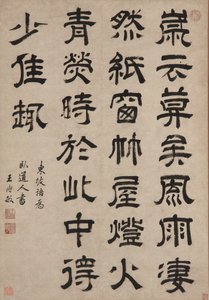 歲云莫矣風雨淒
然紙窗竹屋燈火
青熒時於此中得
少佳趣
東坡語為
臥道人書
王時敏